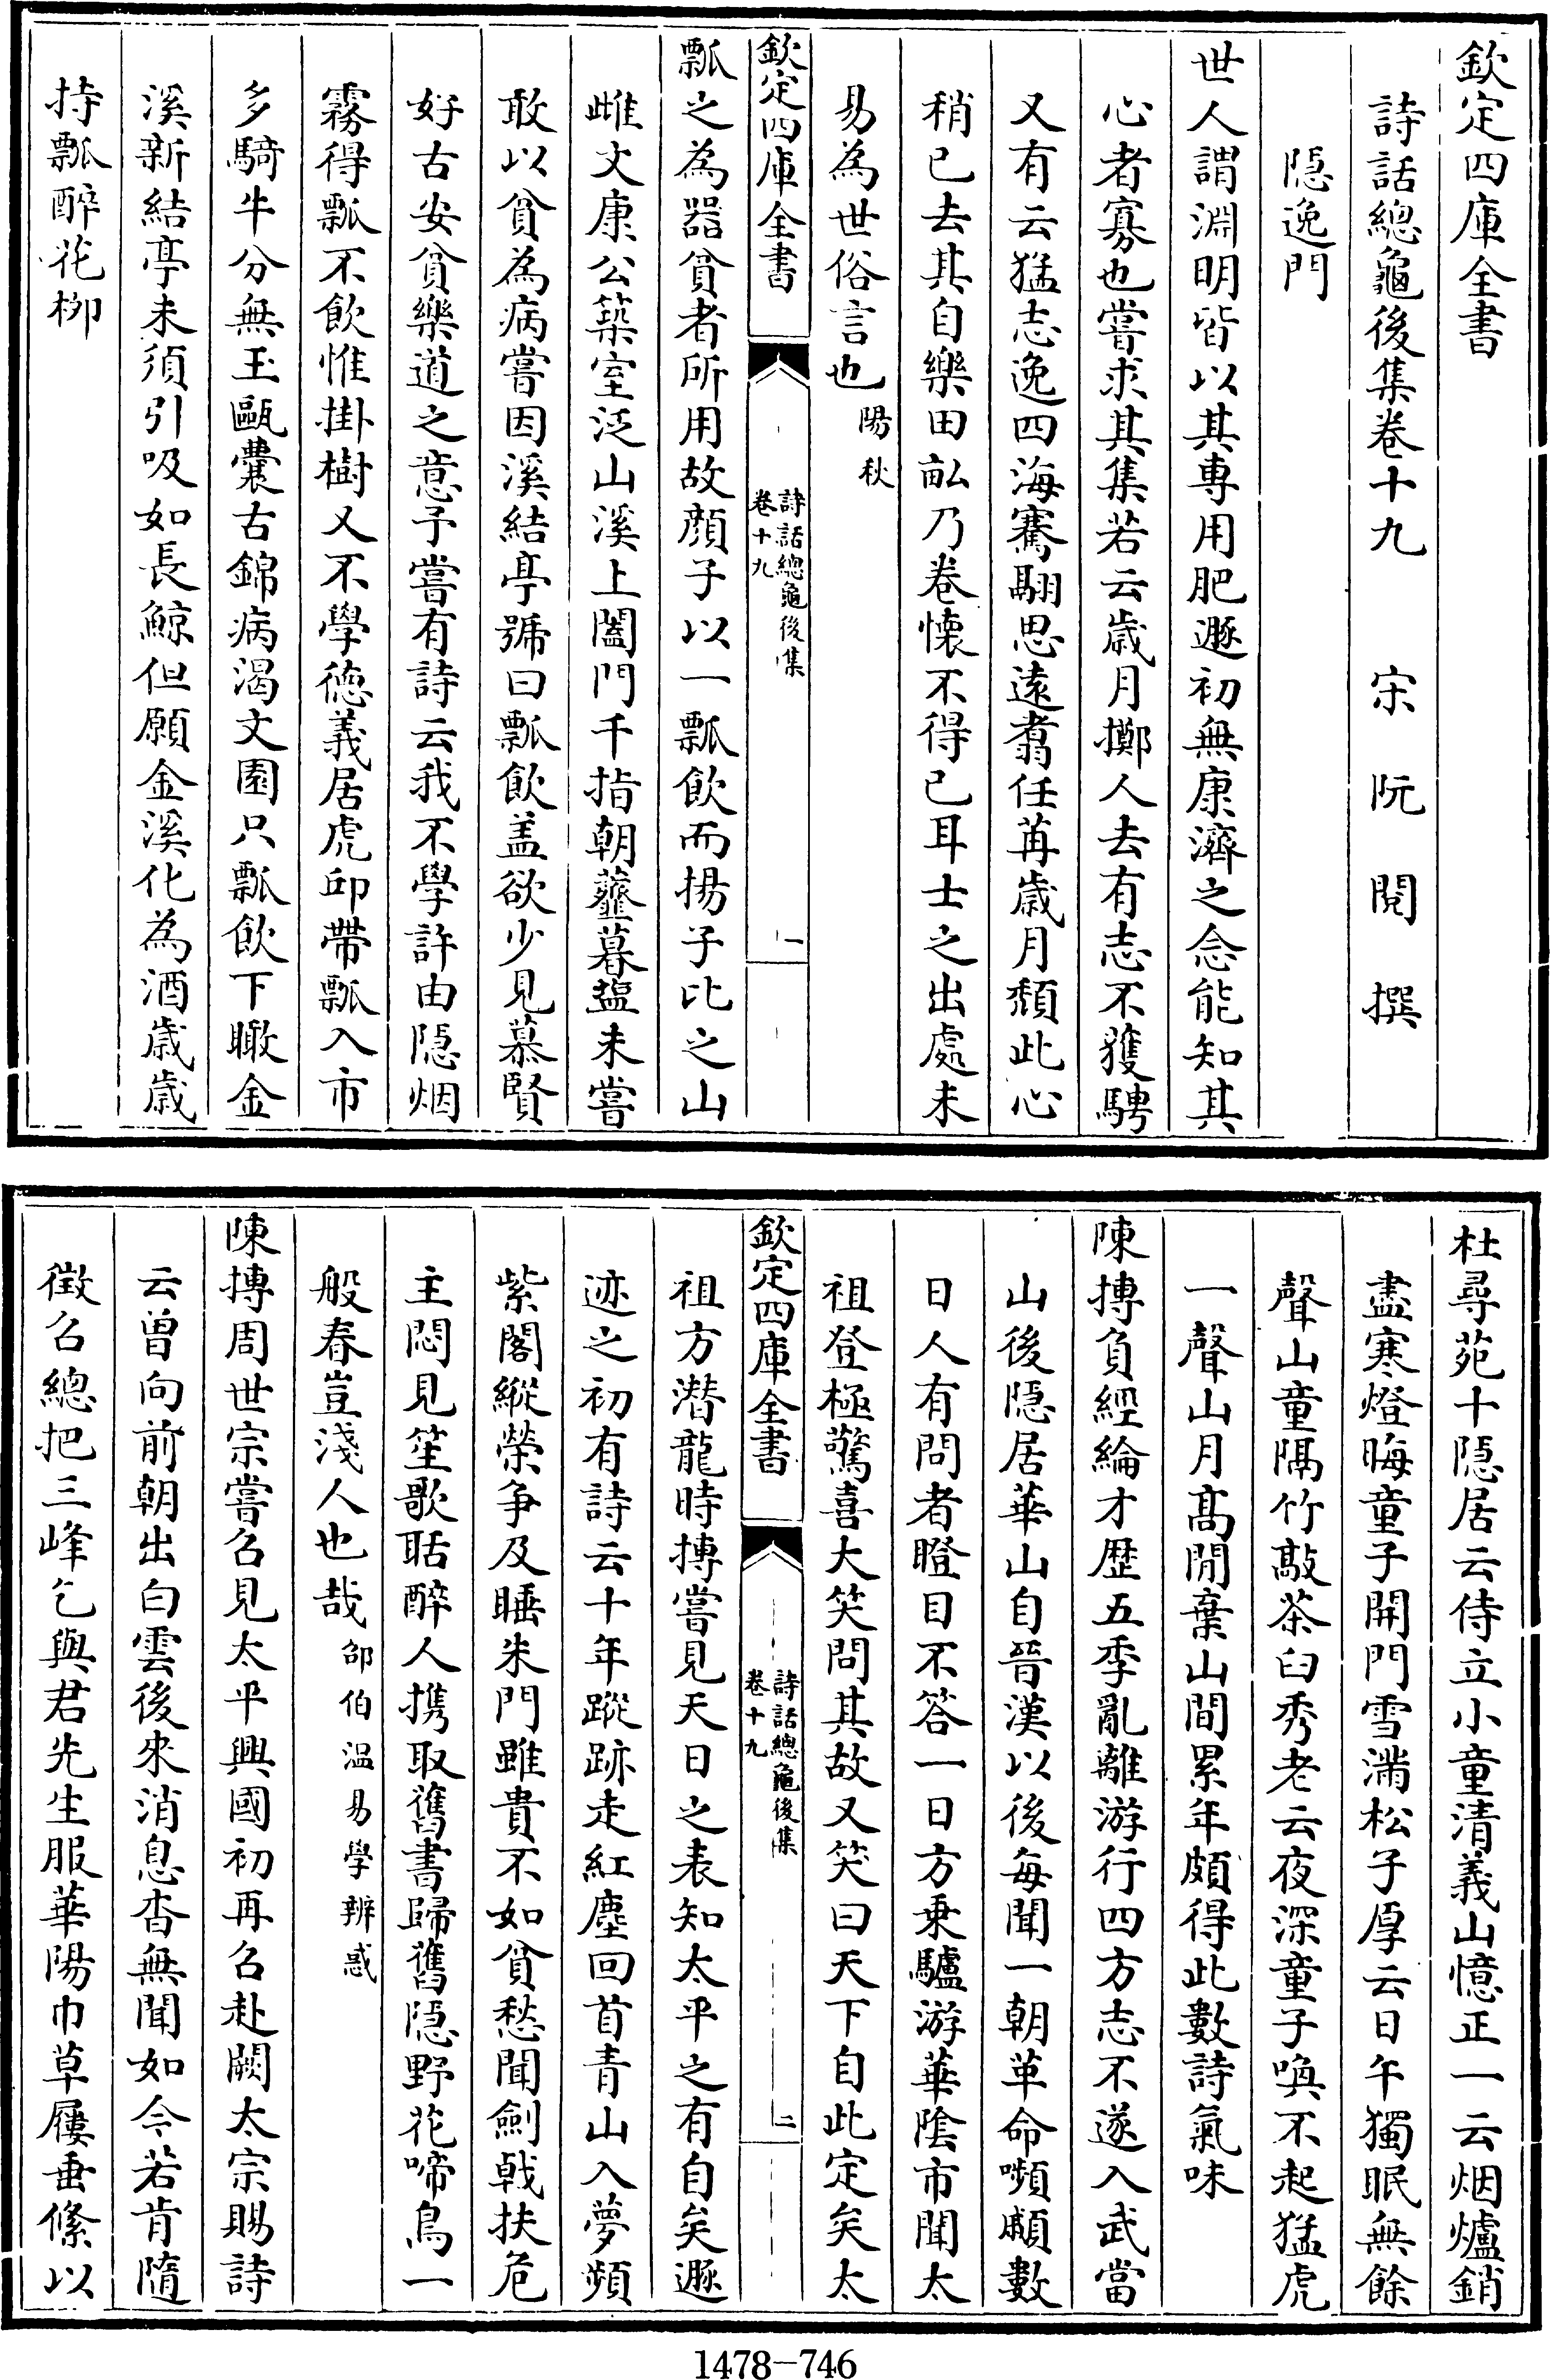 欽定四庫全書
詩話總龜後集卷十九　宋　阮　閱　撰
隱逸門
世人謂淵明皆以其專用肥遯初無康濟之念能知其
心者寡也嘗求其集若云歲月擲人去有志不獲騁
又有云猛志逸四海騫翮思遠翥任苒歲月頹此心
稍已去其自樂田畝乃卷懷不得已耳士之出處未
易為世俗言也陽秋
欽定四庫全書
詩話總龜後集
卷十九
一
瓢之為器貧者所用故顔子以一瓢飲而揚子比之山
雌文康公築室泛山溪上闔門千指朝虀暮鹽未嘗
敢以貧為病嘗因溪結亭號曰瓢飲盖欲少見慕賢
好古安貧樂道之意予嘗有詩云我不學許由隱烟
霧得瓢不飲惟掛樹又不學德義居虎邱帶瓢入市
多騎牛分無玉甌囊古錦病渴文園只瓢飲下瞰金
溪新結亭未須引吸如長鯨但願金溪化為酒歲歲
持瓢醉花栁
杜尋苑十隱居云侍立小童清義山憶正一云烟爐銷
盡寒燈晦童子開門雪滿松子厚云日午獨眠無餘
聲山童隔竹敲茶臼秀老云夜深童子喚不起猛虎
一聲山月髙閒棄山間累年頗得此數詩氣味
陳摶負經綸才歴五季亂離游行四方志不遂入武當
山後隱居華山自晉漢以後每聞一朝革命嚬顣數
日人有問者瞪目不答一日方乗驢游華陰市聞太
祖登極驚喜大笑問其故又笑曰天下自此定矣太
欽定四庫全書
詩話總龜後集
卷十九
二
祖方潛龍時摶嘗見天日之表知太平之有自矣遯
迹之初有詩云十年蹤跡走紅塵回首青山入夢頻
紫閣縱榮争及睡朱門雖貴不如貧愁聞劍㦸扶危
主悶見笙歌聒醉人携取舊書歸舊隱野花啼鳥一
般春豈淺人也哉邵伯温易學辨惑
陳摶周世宗嘗召見太平興國初再召赴闕太宗賜詩
云曽向前朝出白雲後來消息杳無聞如今若肯隨
徵召總把三峰乞與君先生服華陽巾草屨垂絛以
1478-746